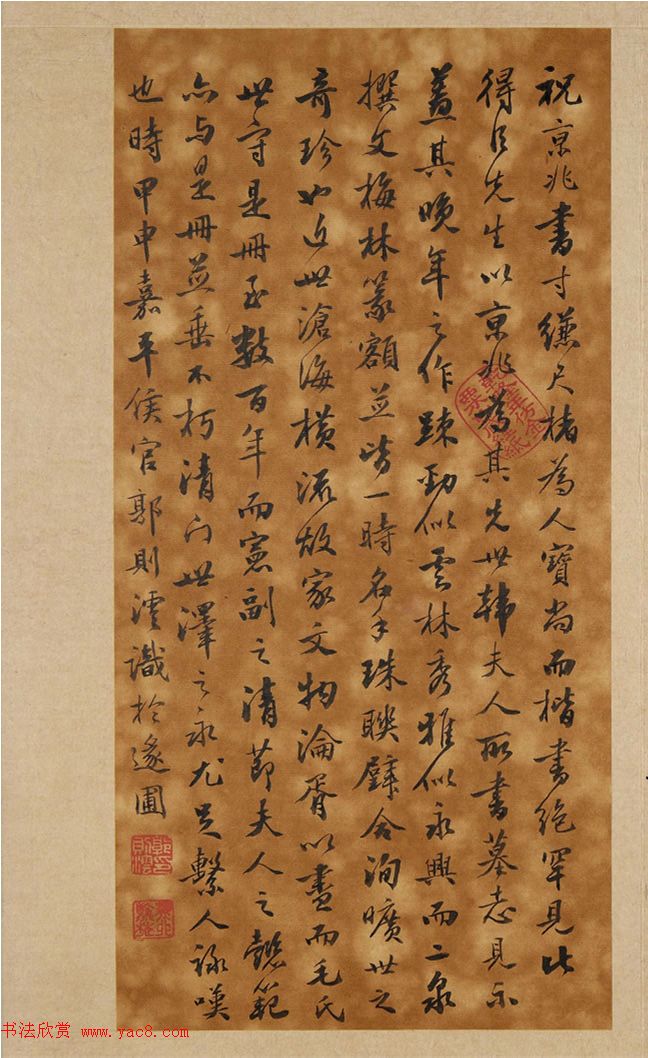 祝京兆書寸縑尺楮為人寶尚而楷書絕罕見此
得臣先生以京兆為其先世韓夫人所書墓志見示
蓋其晚年之作踈勁似雲林秀雅似永興而二泉
撰文梅林篆額並皆一時名手珠聯璧合洵曠世之
奇珍也近世滄海橫流故家文物淪胥以盡而毛氏
世守是冊至數百年而憲副之清節夫人之懿範
亦与是冊並垂不朽清門世澤之永尤足繫人詠嘆
也時甲申嘉平侯官郭則澐識於邃圃
书法欣赏 www.yac8.com